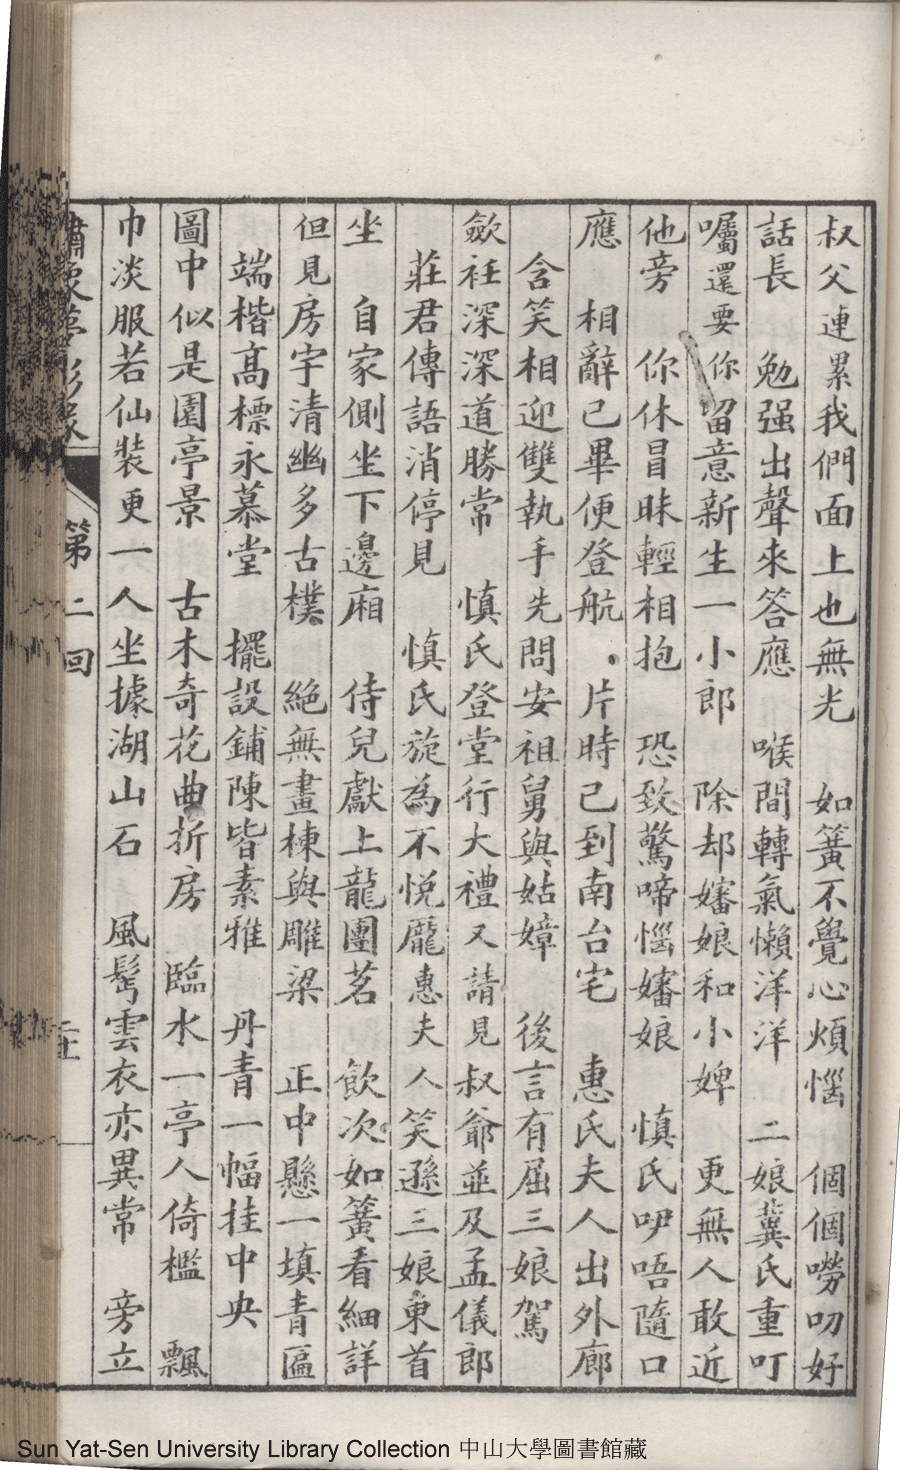 叔父連累我們面上也無光　如簧不覺心煩惱　個個嘮叨好
話長　勉强出聲來答應　喉間轉氣懶洋洋　二娘龔氏重叮
囑還要你留意新生一小郎　除却嬸娘和小婢　更無人敢近
他旁　你休冒昧輕相抱　恐致驚啼惱嬸娘　慎氏咿唔隨口
應　相辭已畢便登航　片時已到南台宅　惠氏夫人出外廊
含笑相迎雙執手先問安祖舅與姑嫜　後言有屈三娘駕
歛衽深深道勝常　慎氏登堂行大禮又請見叔爺並及孟儀郎
莊君傳語消停見　慎氏旋為不悅龐惠夫人笑遜三娘東首
坐　自家側坐下邊廂　侍兒獻上龍團茗　飲次如簧看細詳
但見房宇清幽多古樸　絕無畫棟與雕梁　正中懸一填青匾
端楷高標永慕堂　擺設鋪陳皆素雅　丹青一幅挂中央
圖中似是園亭景　古木奇花曲折房　臨水一亭人倚檻　飄
巾淡服若仙裝更一人坐據湖山石　風髩雲衣亦異常　旁立
第二回
Sun Yat-Sen University Library Collection 中山大學圖書館藏